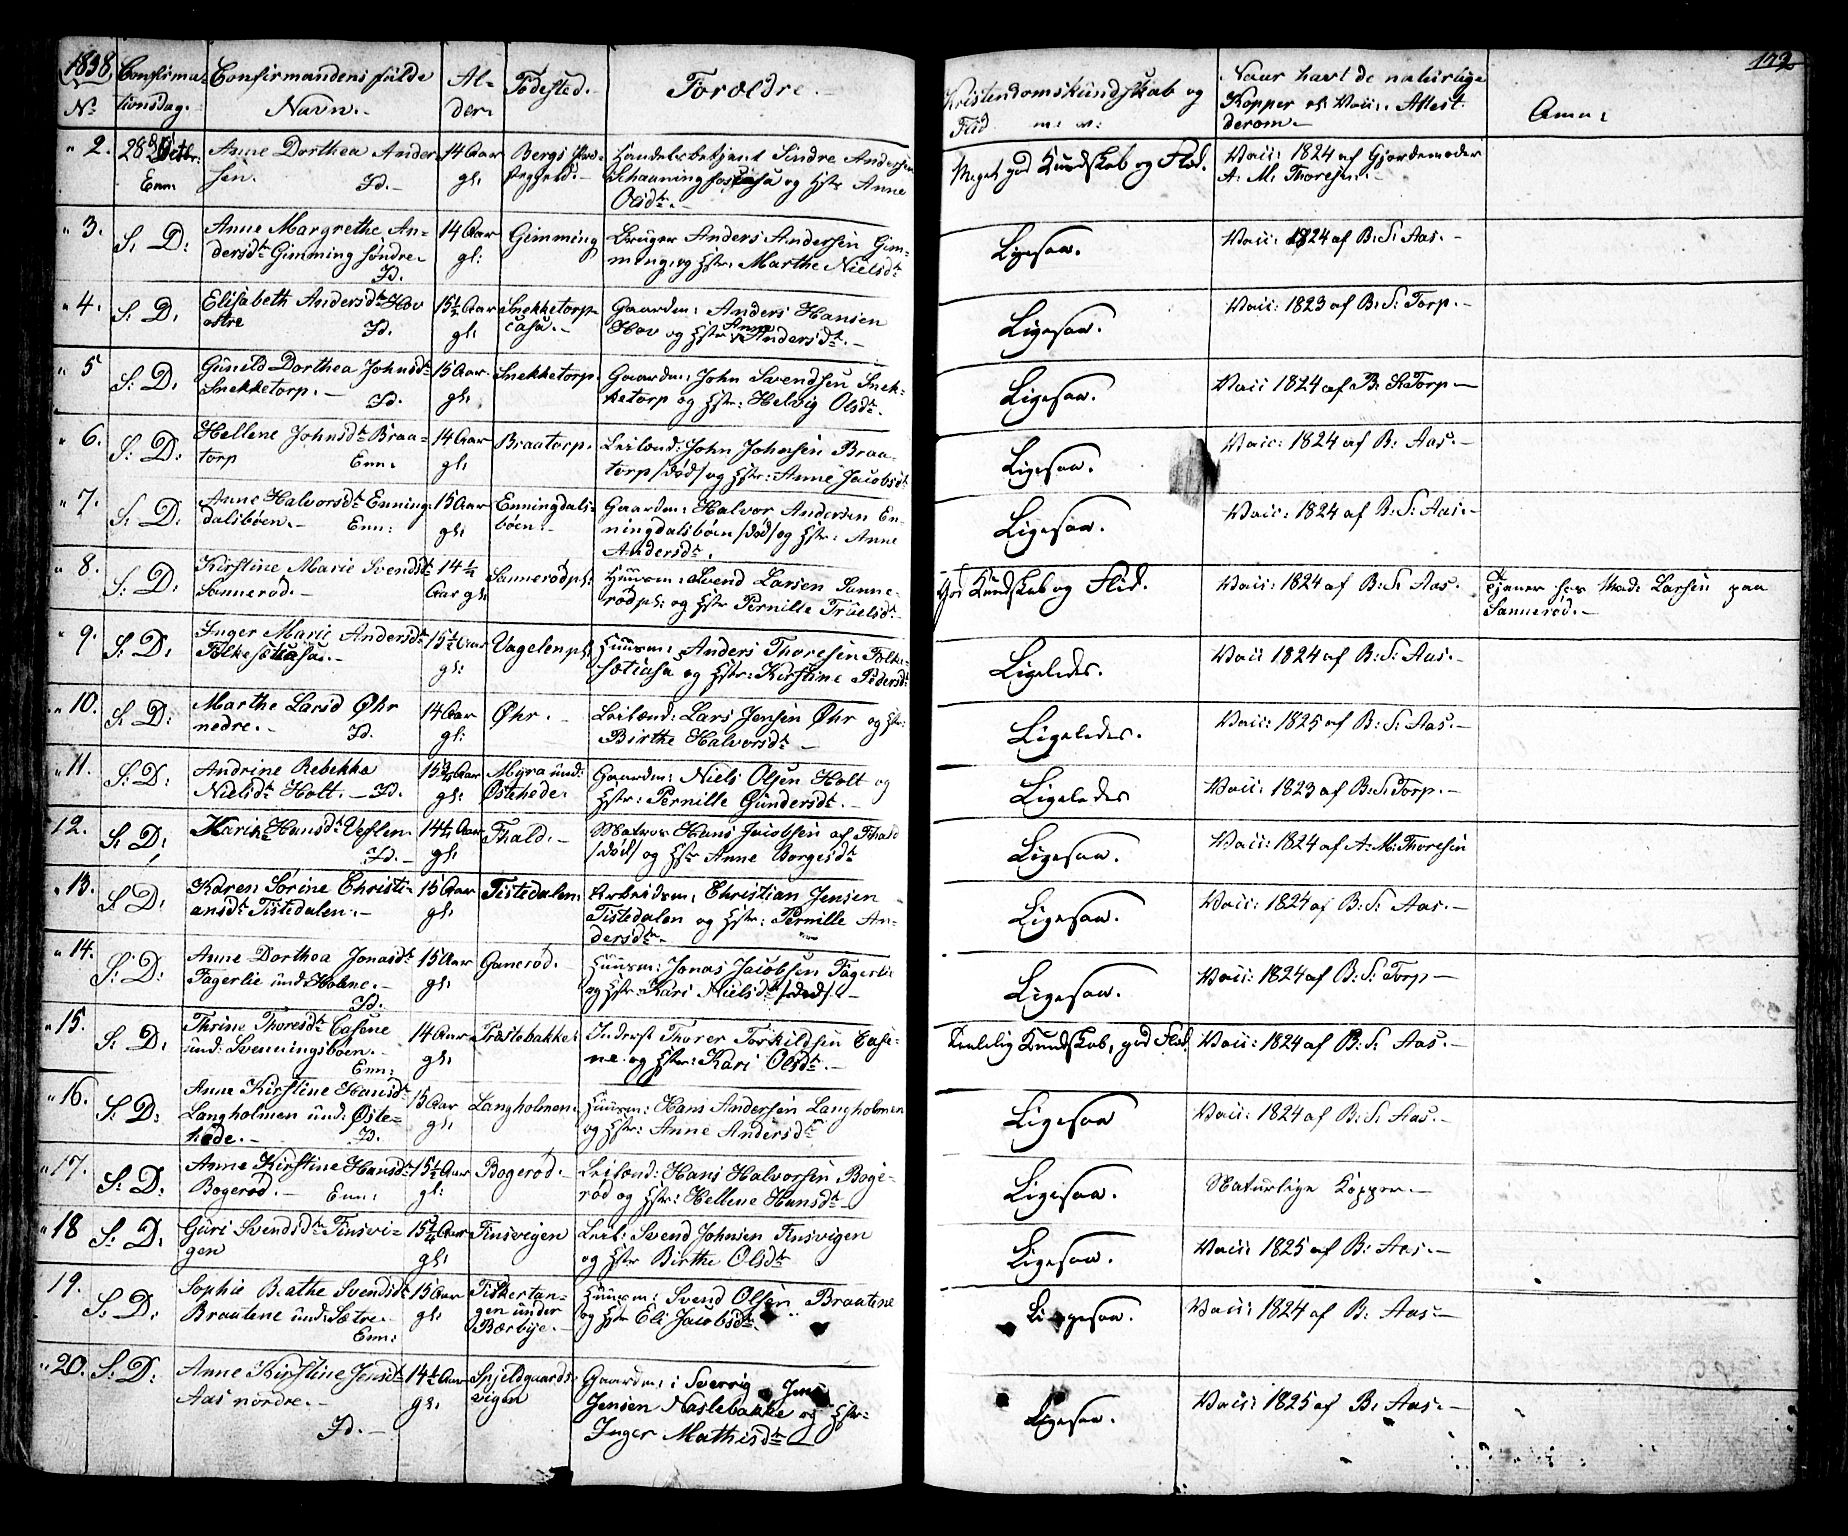 1838.
No
Confirma-
tionsdag.
Confirmandens fulde
Navn.
Al-
der.
Fødested.
Forældre.
Kristendomskundskab og
Flid m: v:
Naar havt de naturlige
Kopper el: Vacc: Attest
derom.
Anm:
2. Anne Dorthea Ander-
sen. Id.
14 Aar
gl:
Bergs Præ-
stegjeld.
Handelsbetjent Sindre Andersen
og Hstr Anne
Olsdtr.
Meget god Kundskab og Flid.
Vacc: 1824 af Gjordemoder
A. M. Thoresen.
3. S. D:
Anne Margrethe An-
dersdtr Gimming søndre.
Id.
14 Aar
gl:
Gimming
Bruger Anders Andersen Gim-
ming, og Hstr: Marthe Nielsdtr
Ligesaa.
Vacc: 1824 af B: S: Aas.
4. S: D.
Elisabeth Andersdtr Hov
østre Id.
15½ Aar
gl:
Snekketorp-
casa.
Gaardm: Anders Hansen
Hov og Hstr: Anne Andersdtr.
Ligesaa.
Vacc: 1823 af B: S: Torp.
5 S: D.
Gunild Dorthea Johnsdtr
Snekketorp. Id.
15 Aar.
gl:
Snekketorp.
Gaardm: John Svendsen Snek-
ketorp og Hstr: Helvig Olsdtr.
Ligesaa.
Vacc 1824 af B. S. Torp
6. S: D:
Hellene Johnsdtr Braa-
torp Enn:
14 Aar
gl:
Braatorp.
Leilænd: John Johnsen Braa-
torp /død/ og Hstr: Anne Jacobsdtr
Ligesaa.
Vacc: 1824 af B: Aas.
7. S. D:
Anne Halvorsdtr Enning-
dalsbøen. Enn:
15 Aar
gl:
Enningdals-
bøen.
Gaardm: Halvor Andersen En-
ningdalsbøen /død/ og Hstr: Anne
Andersdtr.
Ligesaa.
Vacc: 1824 af B: S: Aas.
8. S: D:
Kirstine Marie Svendsdtr
Sannerød.
14½
Aar gl:
Sannerødpl:
Huusm: Svend Larsen Sanne-
rødpl: og Hstr Pernille Truelsdtr.
God Kundskab og Flid.
Vacc: 1824 af B: S: Aas.
Tjener hos Mads Larsen paa
Sannerød.
9. S: D:
Inger Marie Andersdtr
Folkesætcasa.
15½ Aar
gl:
Vagelenpl:
Huusm: Anders Thoresen Folke-
sætcasa og Hstr: Kirstine Pedersdtr
Ligeledes.
Vacc 1824 af B: S: Aas.
10. S. D:
Marthe Larsd Øhr
nedre. Id.
14 Aar
gl:
Øhr.
Leilænd: Lars Jensen Øhr og Hstr:
Birthe Halvorsdtr
Ligeledes.
Vacc: 1825 af B: S: Aas.
11. S: D:
Andrine Rebekka
Nielsdtr Holt. Id.
15¾ Aar
gl:
Myra und:
Østehede.
Gaardm: Niels Olsen Holt og
Hstr: Pernille Gundersdtr.
Ligeledes
Vacc: 1823 af B: S: Torp.
12. S: D:
Marike Hansdtr Veslen
Id.
14½ Aar
gl:
Thald.
Matros Hans Jacobsen af Thald
/død/ og Hstr Anne Borgesdtr
Ligesaa.
Vacc: 1824 af A: M: Thoresen
13. S: D:
Karen Sørine Christi-
ansdtr Tistedalen.
15 Aar
gl:
Tistedalen.
Arbeidsm: Christian Jensen
Tistedalen og Hstr: Pernille An-
dersdtr.
Ligesaa.
Vacc: 1824 af B: S: Aas.
14. S: D:
Anne Dorthea Jonasdtr
Fagerlie und: Holme.
Id.
15 Aar
gl:
Ganerød.
Huusm: Jonas Jacobsen Fagerlie
og Hstr Kari Nielsdtr /død/.
Ligesaa.
Vacc: 1824 af B: S: Torp
15. S: D:
Thrine Thoresdtr Casene
und: Svenningsbøen.
Enn:
14 Aar
gl:
Præstebakke:
Inderst Thorer Torkildsen Case-
ne og Hstr: Kari Olsdtr.
Kundskab, god Flid.
Vacc: 1824 af B: S: Aas.
16. S: D:
Anne Kirstine Hansdtr
Langholmen und: Øste-
hede. Id.
15 Aar
gl:
Langholmen.
Huusm: Hans Andersen Langholmen
og Hstr: Anne Andersdtr
Ligesaa
Vacc: 1824 af B: S: Aas.
17. S: D:
Anne Kirstine Hansdtr
Bogerød. Enn:
15½ Aar
gl:
Bogerød.
Leilænd: Hans Halvorsen Boge-
rød og Hstr: Hellene Hansdtr
Ligesaa.
Naturlige Kopper.
18 S: D:
Guri Svendsdtr Tinsvi-
gen
15¾ Aar
gl:
Tinsvigen
Leil: Svend Johnsen Tinsvigen
og Hstr Birthe Olsdtr
Ligesaa.
Vacc: 1825 af B: Aas.
19. S: D:
Sophie Beathe Svendsdtr
Braatene und: Sætre.
Enn:
15 Aar
gl:
Fiskertan-
gen under
Bærbye.
Huusm: Svend Olsen Braatene
og Hstr Eli Jacobsdtr
Ligesaa.
Vacc: 1824 af B: Aas.
20. S: D:
Anne Kirstine Jensdtr
Aas nordre.
Id.
14½ Aar
gl:
Spjeldgaards-
vigen
Gaardm: i Sverrig Jens
Jensen Naslebakke og Hstr
Inger Mathisdtr
Ligesaa.
Vacc: 1825 af B: Aas.